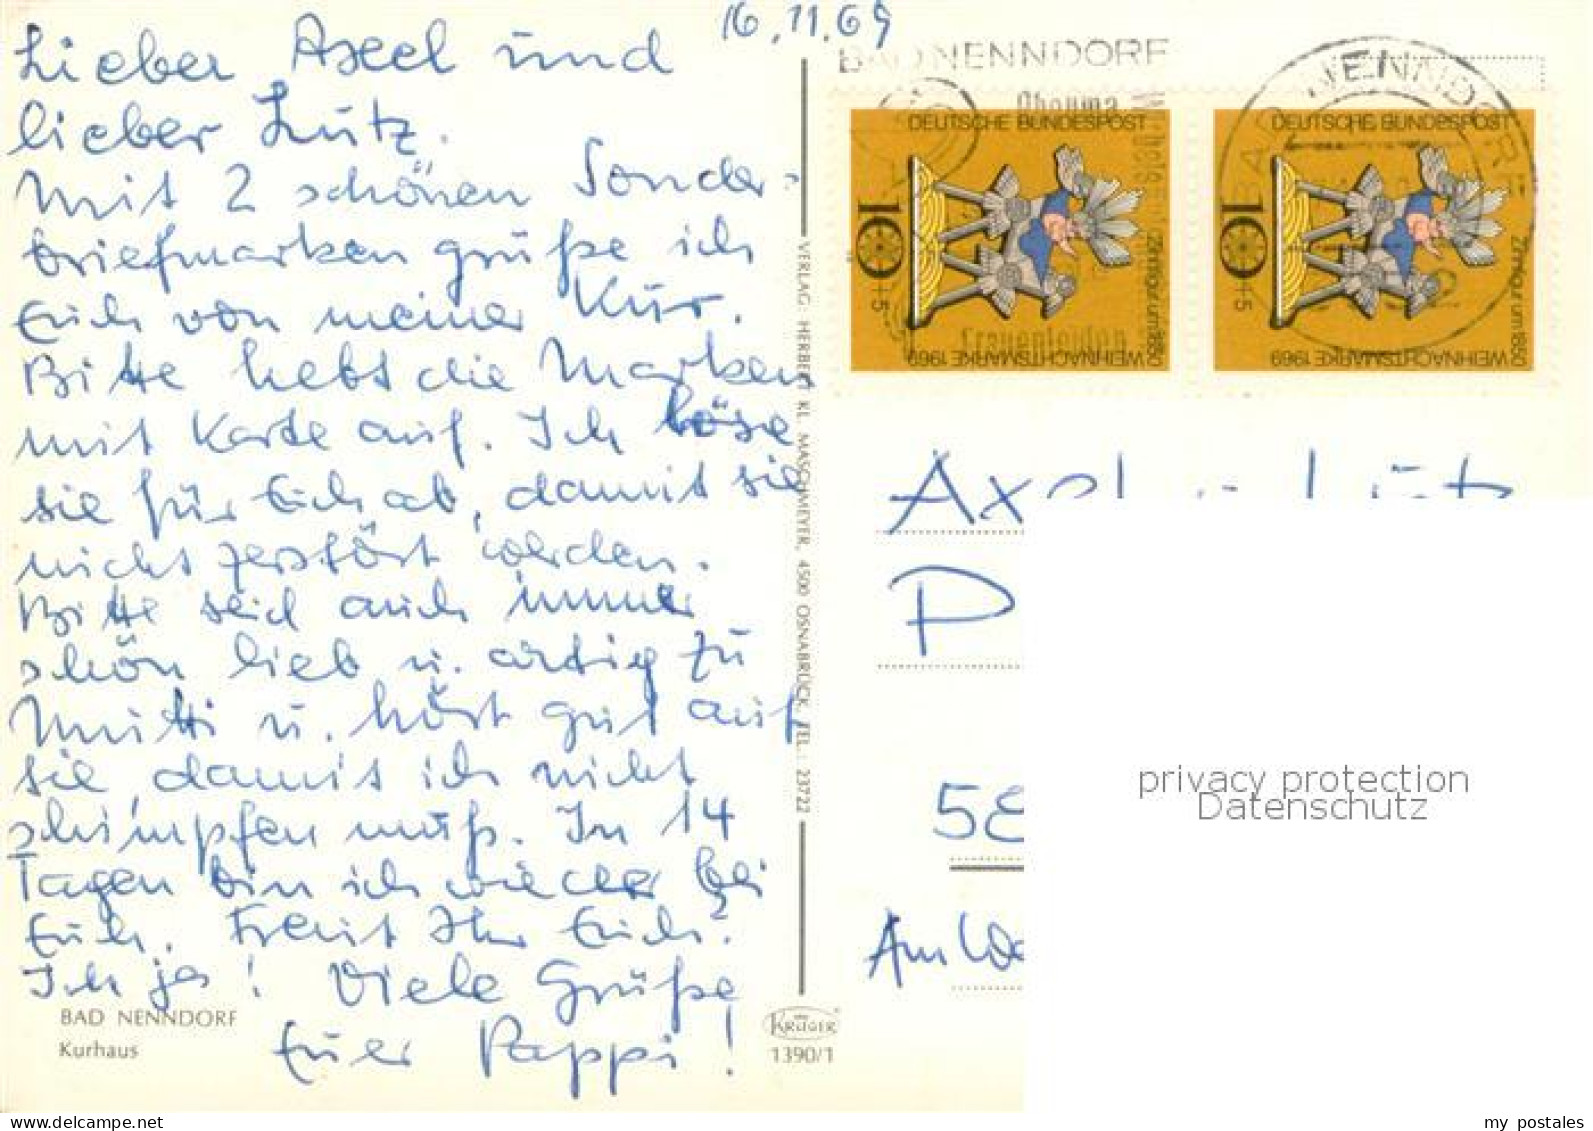 16.11.69
Lieber Axel und
lieber Lutz.
Mit 2 schönen Sonder-
briefmarken grüße ich
Euch von meiner Kur.
Bitte hebt die Marken
mit Karte auf. Ich löse
sie für Euch ab, damit sie
nicht zerstört werden.
Bitte seid auch immer
schön lieb u. artig zu
Mutti u. hört gut auf
sie, damit ich nicht
schimpfen muß. In 14
Tagen bin ich wieder bei
Euch. Freut Ihr Euch?
Ich ja! Viele Grüße
Euer Pappi!
BAD NENNDORF
Kurhaus
VERLAG: HERBERT KL. MASCHMEYER, 4500 OSNABRÜCK, TEL.: 23722
KRÜGER
1390/1
BAD NENNDORF
Rheuma
Frauenleiden
BAD NENNDORF
DEUTSCHE BUNDESPOST
10+5
Zinnfigur um 1850
WEIHNACHTSMARKE 1969
DEUTSCHE BUNDESPOST
10+5
Zinnfigur um 1850
WEIHNACHTSMARKE 1969
Axel u. Lutz
P
58
privacy protection
Datenschutz
my postales